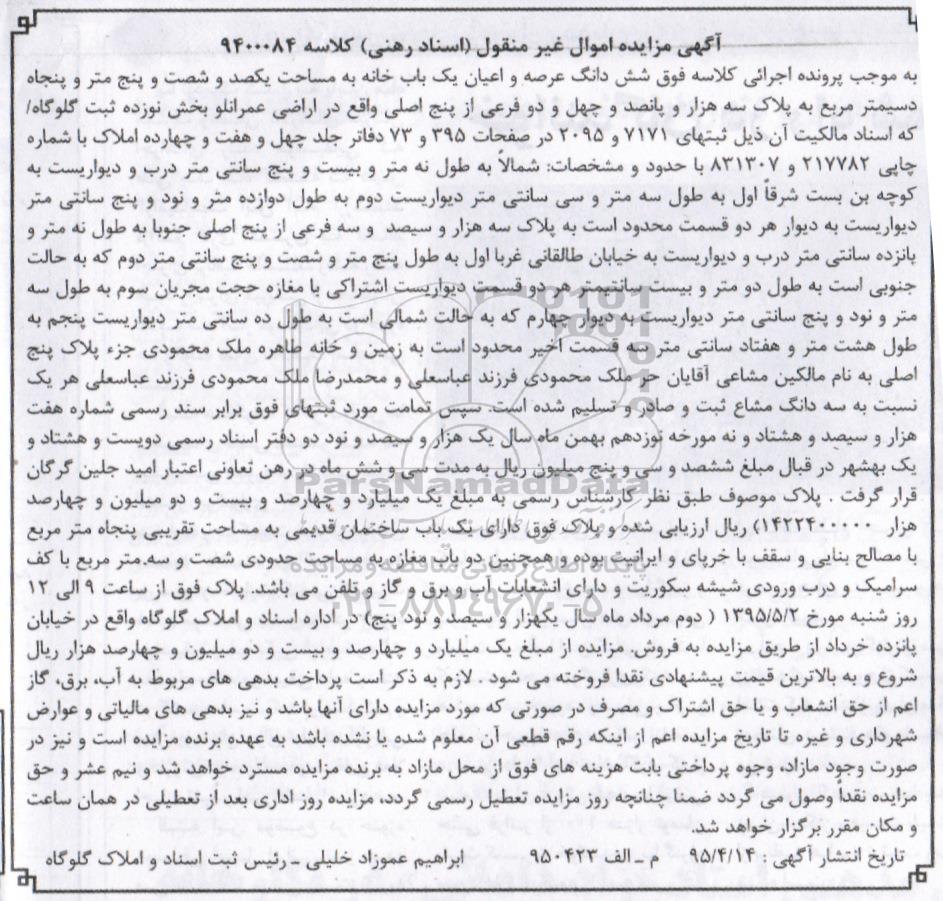 آگهی مزایده اموال غیر منقول (اسناد رهنی) کلاسه ۹۴۰۰۰۸۴
به موجب پرونده اجرائی کلاسه فوق شش دانگ عرصه و اعیان یک باب خانه به مساحت یکصد و شصت و پنج متر و پنجاه
دسمتر مربع به پلاک سه هزار و پانصد و چهل و دو فرعی از پنج اصلی واقع در اراضی عمرانلو بخش نوزده ثبت گلوگاه/
که اسناد مالکیت آن ذیل ثبتهای ۷۱۷۱ و ۲۰۹۵ در صفحات ۳۹۵ و ۷۳ دفاتر جلد چهل و هفت و چهارده املاک با شماره
چاپی ۲۱۷۷۸۲ و ۸۳۱۳۰۷ با حدود و مشخصات: شمالاً به طول نه متر و بیست و پنج سانتی متر درب و دیواریست به
کوچه بن بست شرقاً اول به طول سه متر و سی سانتی متر دیواریست دوم به طول دوازده متر و نود و پنج سانتی متر
دیواریست به دیوار هر دو قسمت محدود است به پلاک سه هزار و سیصد و سه فرعی از پنج اصلی جنوبا به طول نه متر و
پانزده سانتی متر درب و دیواریست به خیابان طالقانی غربا اول به طول پنج متر و شصت و پنج سانتی متر دوم که به حالت
جنوبی است به طول دو متر و بیست سانتیمتر هر دو قسمت دیواریست اشتراکی با مغازه حجت مجریان سوم به طول سه
متر و نود و پنج سانتی متر دیواریست به دیوار چهارم که به حالت شمالی است به طول ده سانتی متر دیواریست پنجم به
طول هشت متر و هفتاد سانتی متر سه قسمت اخیر محدود است به زمین و خانه طاهره ملک محمودی جزء پلاک پنج
اصلی به نام مالکین مشاعی آقایان حر ملک محمودی فرزند عباسعلی و محمدرضا ملک محمودی فرزند عباسعلی هر یک
نسبت به سه دانگ مشاع ثبت و صادر و تسلیم شده است. سپس تمامت مورد ثبتهای فوق برابر سند رسمی شماره هفت
هزار و سیصد و هشتاد و نه مورخه نوزدهم بهمن ماه سال یک هزار و سیصد و نود دو دفتر اسناد رسمی دویست و هشتاد و
یک بهشهر در قبال مبلغ ششصد و سی و پنج میلیون ریال به مدت سی و شش ماه در رهن تعاونی اعتبار امید جلین گرگان
قرار گرفت . پلاک موصوف طبق نظر کارشناس رسمی به مبلغ یک میلیارد و چهارصد و بیست و دو میلیون و چهارصد
هزار ۱۴۲۲۴۰۰۰۰۰) ریال ارزیابی شده و پلاک فوق دارای یک باب ساختمان قدیمی به مساحت تقریبی پنجاه متر مربع
با مصالح بنایی و سقف با خرپای و ایرانیت بوده و همچنین دو باب مغازه به مساحت حدودی شصت و سه متر مربع با کف
سرامیک و درب ورودی شیشه سکوریت و دارای انشعابات آب و برق و گاز و تلفن می باشد. پلاک فوق از ساعت ۹ الی ۱۲
روز شنبه مورخ ۱۳۹۵/۵/۲ ( دوم مرداد ماه سال یکهزار و سیصد و نود پنج) در اداره اسناد و املاک گلوگاه واقع در خیابان
پانزده خرداد از طریق مزایده به فروش. مزایده از مبلغ یک میلیارد و چهارصد و بیست و دو میلیون و چهارصد هزار ریال
شروع و به بالاترین قیمت پیشنهادی نقدا فروخته می شود . لازم به ذکر است پرداخت بدهی های مربوط به آب، برق، گاز
اعم از حق انشعاب و یا حق اشتراک و مصرف در صورتی که مورد مزایده دارای آنها باشد و نیز بدهی های مالیاتی و عوارض
شهرداری و غیره تا تاریخ مزایده اعم از اینکه رقم قطعی آن معلوم شده یا نشده باشد به عهده برنده مزایده است و نیز در
صورت وجود مازاد، وجوه پرداختی بابت هزینه های فوق از محل مازاد به برنده مزایده مسترد خواهد شد و نیم عشر و حق
مزایده نقدا وصول می گردد ضمنا چنانچه روز مزایده تعطیل رسمی گردد، مزایده روز اداری بعد از تعطیلی در همان ساعت
و مکان مقرر برگزار خواهد شد.
تاریخ انتشار آگهی : ۹۵/۴/۱۴ م ـ الف ۹۵۰۴۲۳ ابراهیم عموزاد خلیلی ـ رئیس ثبت اسناد و املاک گلوگاه
ParsNamadData
پایگاه اطلاع رسانی مناقصه و مزایده
۰۲۱-۸۸۳۴۹۶۷۰-۵